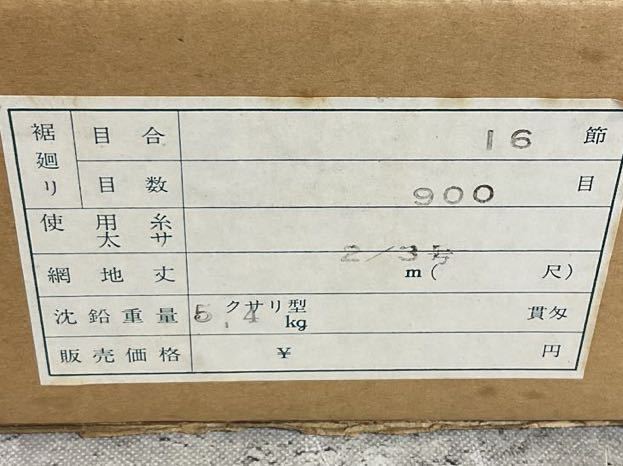 裾廻り 目合 16 節
目数 900 目
使用糸太サ 2/3号
網地丈 m( 尺)
沈鉛重量 クサリ型 5.4 kg 貫匁
販売価格 ¥ 円